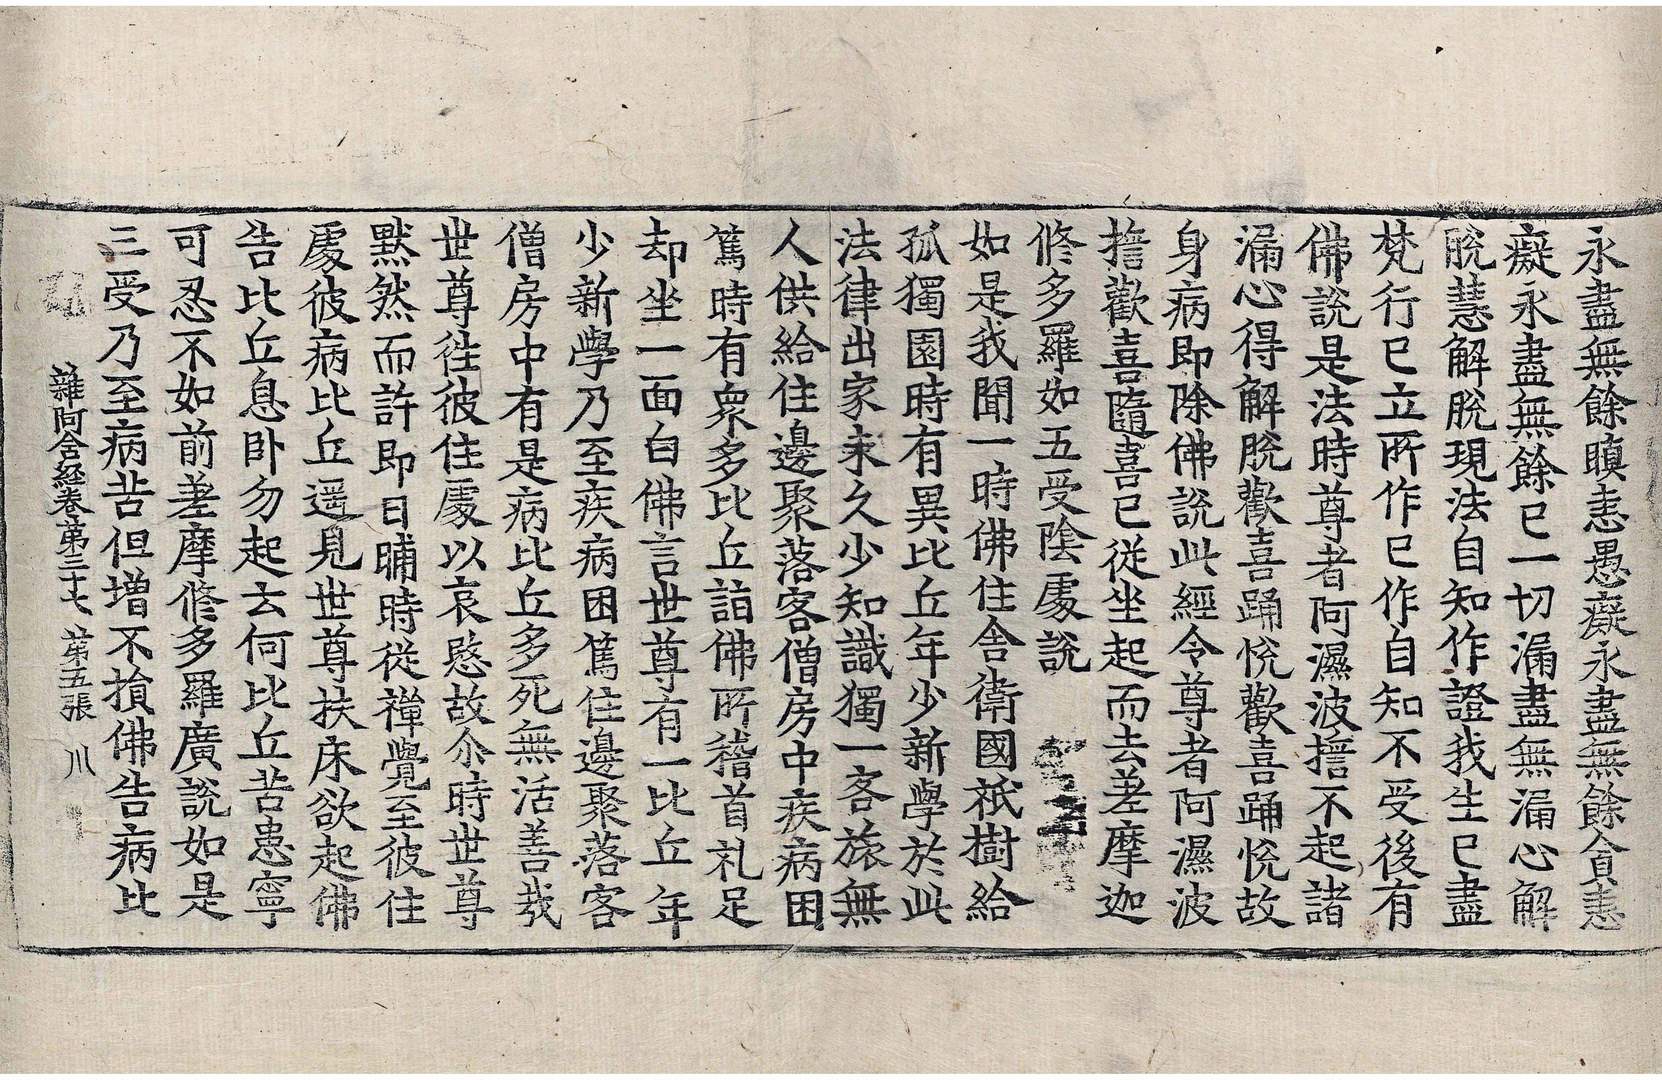 永盡無餘瞋恚愚癡永盡無餘貪恚
癡永盡無餘已一切漏盡無漏心解
脫慧解脫現法自知作證我生已盡
梵行已立所作已作自知不受後有
佛說是法時尊者阿濕波㨾不起諸
漏心得解脫歡喜踊悅歡喜踊悅故
身病即除佛說此經令尊者阿濕波
㨾歡喜隨喜已從坐起而去差摩迦
修多羅如五受陰處說
如是我聞一時佛住舍衛國祇樹給
孤獨園時有異比丘年少新學於此
法律出家未久少知識獨一客旅無
人供給住邊聚落客僧房中疾病困
篤時有衆多比丘詣佛所稽首礼足
却坐一面白佛言世尊有一比丘年
少新學乃至疾病困篤住邊聚落客
僧房中有是病比丘多死無活善哉
世尊往彼住處以哀愍故尒時世尊
黙然而許即日晡時從禪覺至彼住
處彼病比丘遥見世尊扶床欲起佛
告比丘息卧勿起云何比丘苦患寧
可忍不如前差摩修多羅廣說如是
三受乃至病苦但增不損佛告病比
雜阿含経卷第三十七 苐五張 川